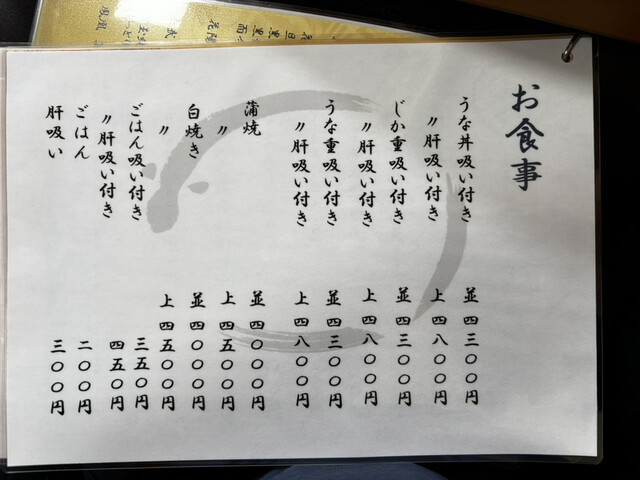 お食事
うな丼吸い付き 並 四三〇〇円
〃肝吸い付き 上 四八〇〇円
じか重吸い付き 並 四三〇〇円
〃肝吸い付き 上 四八〇〇円
うな重吸い付き 並 四三〇〇円
〃肝吸い付き 上 四八〇〇円
蒲焼 並 四〇〇〇円
〃 上 四五〇〇円
白焼き 並 四〇〇〇円
〃 上 四五〇〇円
ごはん吸い付き 三五〇円
〃肝吸い付き 四五〇円
ごはん 二〇〇円
肝吸い 三〇〇円